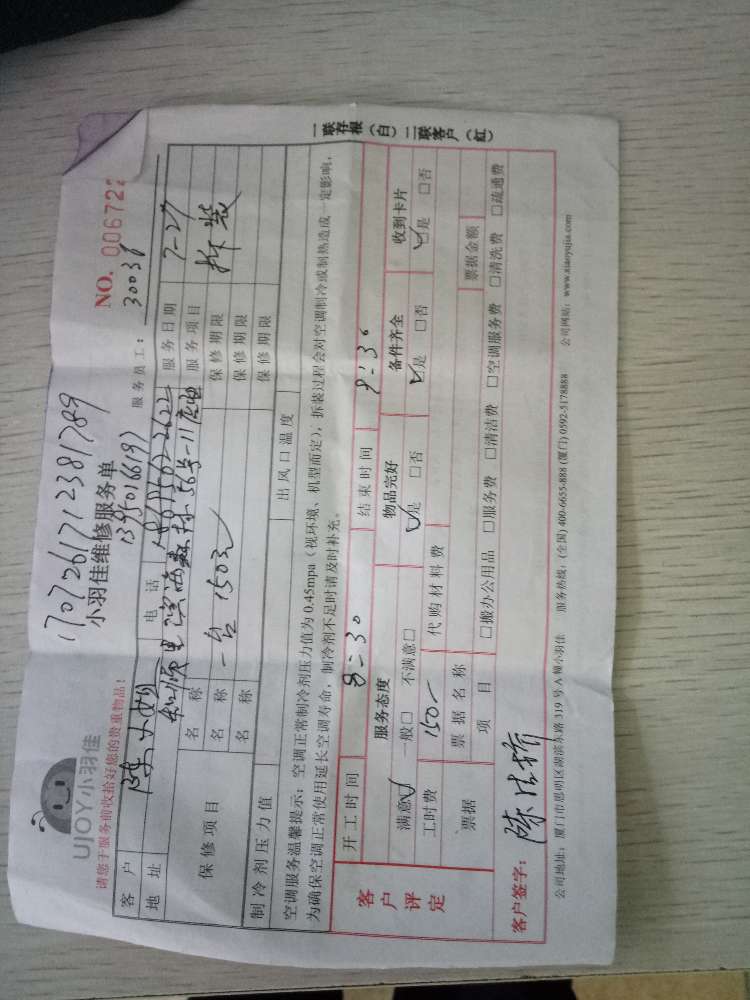 UJOY小羽佳
1707261712381789
小羽佳维修服务单
NO. 006722
请您于服务前收拾好您的贵重物品！
13950166197
服务员工： 30038
客户 陈小妙 电话 服务日期 7-27
地址 服务项目 拆装
保修项目 名称 一台150元 保修期限
名称 保修期限
名称 保修期限
制冷剂压力值 出风口温度
空调服务温馨提示：空调正常制冷剂压力值为0.45mpa（视环境、机型而定），拆装过程会对空调制冷或制热造成一定影响，
为确保空调正常使用延长空调寿命，制冷剂不足时请及时补充。
客户评定
开工时间 8:30 结束时间
服务态度 物品完好 备件齐全 收到卡片
满意☑ 一般□ 不满意□ ☑是 □否 ☑是 □否 ☑是 □否
工时费 150 代购材料费
票据 票据名称 票据金额
项目 □搬办公用品 □服务费 □清洁费 □空调服务费 □清洗费 □疏通费
客户签字：
公司地址：厦门市思明区湖滨东路319号A幢小羽佳 服务热线：(全国) 400-6655-888 (厦门) 0592-5178888 公司网站：www.xiaoyujia.com
一联存根（白）二联客户（红）